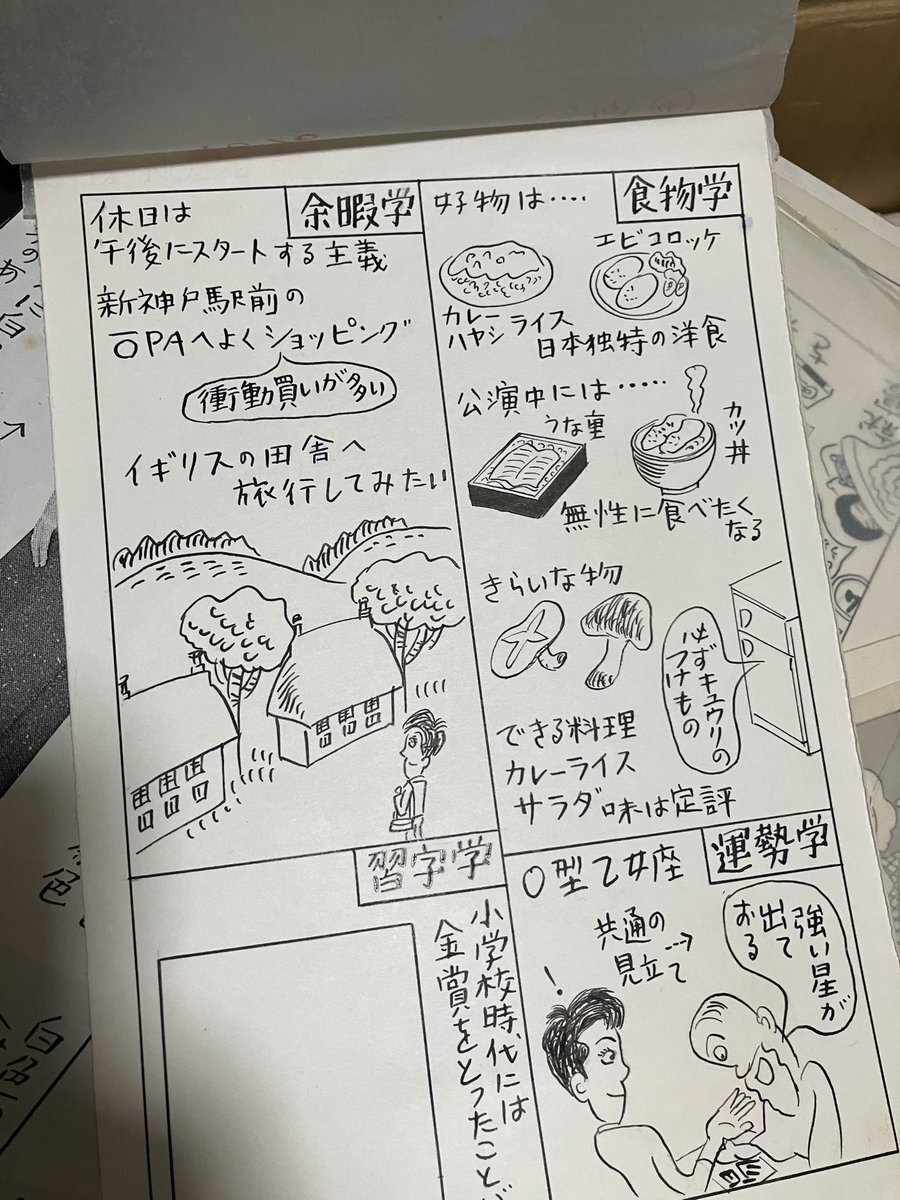 食物学
好物は‥‥
エビコロッケ
カレー
ハヤシライス
日本独特の洋食
公演中には‥‥‥
うな重
カツ丼
無性に食べたく
なる
きらいな物
必ずキュウリの
つけもの
できる料理
カレーライス
サラダ味は定評
余暇学
休日は
午後にスタートする主義
新神戸駅前の
OPAへよくショッピング
衝動買いが多い
イギリスの田舎へ
旅行してみたい
運勢学
O型乙女座
共通の
見立て
強い星が
出て
おる
!
習字学
小学校時代には
金賞をとったことが
白色
色